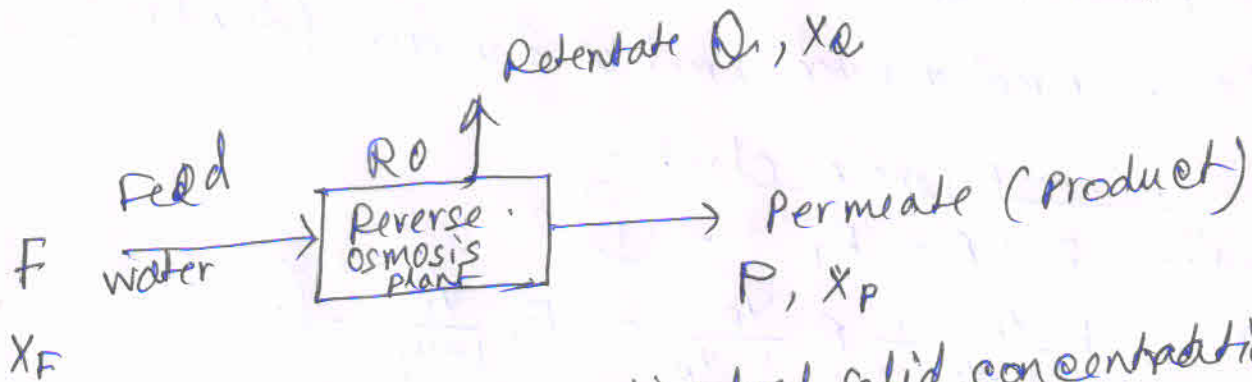 Retentate Q, XQ
Feed
RO
F water
Reverse
osmosis
plant
Permeate (product)
P, XP
XF
solid concentratati